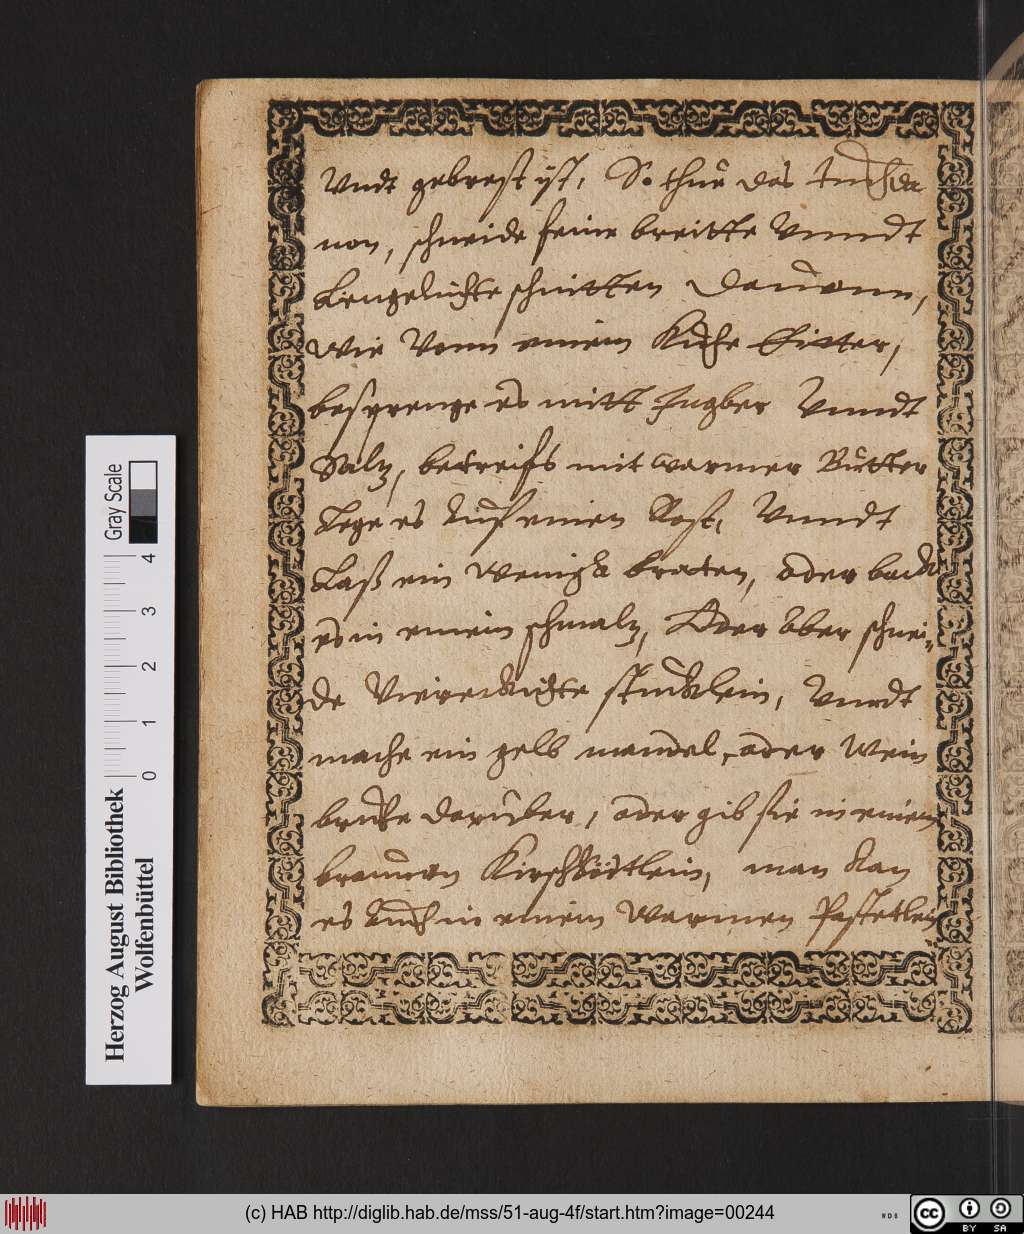 Vndt gebrest ist, So thue das tuch da
uon, schneide feine breitte Vnndt
Lengelichte schnitten Dauonn,
wie Vonn einem Kuhe Eitter,
besprenge es mitt Ingber Vnndt
Saltz, betreifs mit warmer Butter
Lege es auf einen Rost, Vnndt
Laß ein wenigk braten, oder back
es in einem schmaltz, Oder aber schnei-
de Viereckichte stucklein, Vnndt
mache ein gelb mandel, oder Wein
bruhe daruber, oder gib sie in einem
braunen Kirschsödtlein, man kan
es auch in einem Warmen Pastetlein
Gray Scale
0 1 2 3 4
Herzog August Bibliothek
Wolfenbüttel
(c) HAB http://diglib.hab.de/mss/51-aug-4f/start.htm?image=00244
WDB
cc BY SA